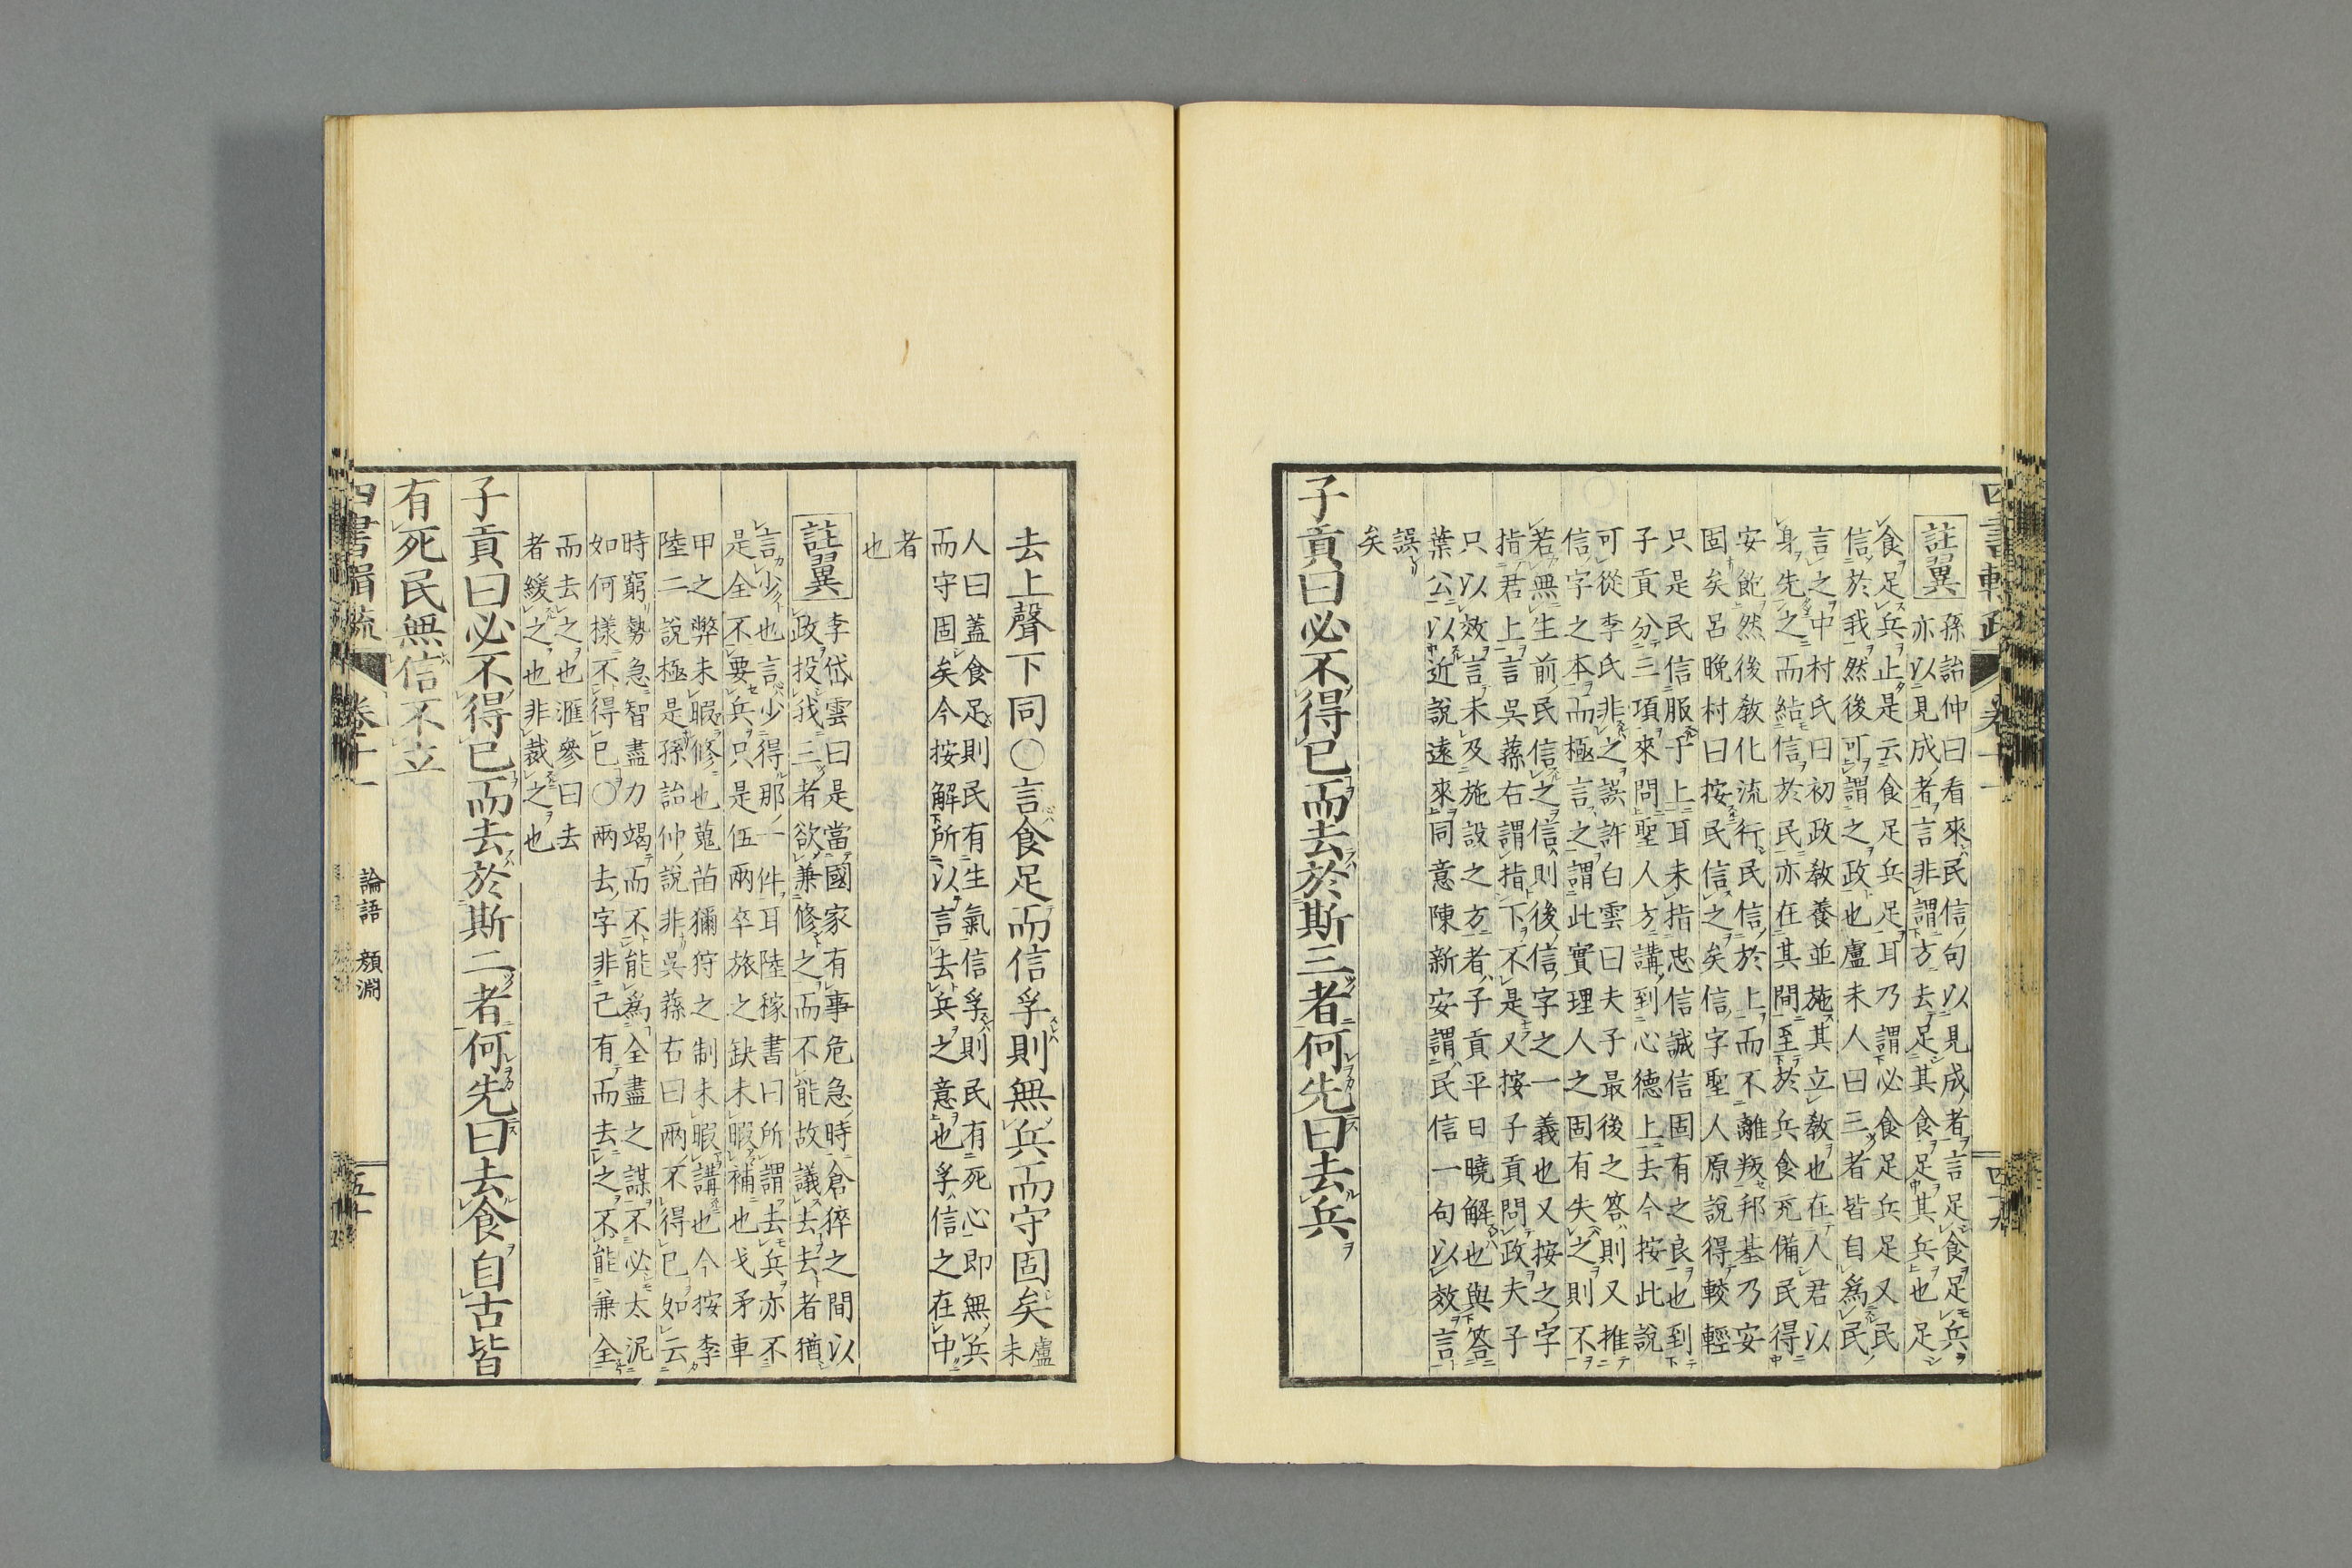 註翼
孫詒仲曰看來民信句以見成者言足食足兵
亦以見成者言非謂方去足其食足其兵也足
食足兵止是云食足兵足耳乃謂必食足兵足又民
信於我然後可謂之政也盧未人曰三者皆自爲民
言之中村氏曰初政教養並施其立教也在人君以
身先之而結信於民亦在其間至於兵食充備民得
安飽然後敎化流行民信於上而不離叛邦基乃安
固矣呂晚村曰按民信之矣信字聖人原說得較輕
只是民信服于上耳未指忠信誠信固有之良也到
子貢分三項來問聖人方講到心德上去今按此說
可從李氏非之誤許白雲曰夫子最後之答則又推
信字之本而極言之謂此實理人之固有失之則不
若無生前民信之信則後信字之一義也又按之字
指君上言吳蓀右謂指下不是又按子貢問政夫子
只以效言未及施設之方者子貢平日曉解也與答
葉公以近說遠來同意陳新安謂民信一句以效言
誤
矣
子貢曰必不得已而去於斯三者何先曰去兵
去上聲下同〇言食足而信孚則無兵而守固矣盧未
人曰蓋食足則民有生氣信孚則民有死心即無兵
而守固矣今按解所以言去兵之意也孚信之在中
者
也
註翼
李岱雲曰是當國家有事危急時倉猝之間以
政投我三者欲兼修之而不能故議去去者猶
言少也言少得那一件耳陸稼書曰所謂去兵亦不
是全不要兵只是伍兩卒旅之缺未暇補也戈矛車
甲之弊未暇修也蒐苗獮狩之制未暇講也今按李
陸二說極是孫詒仲說非吳蓀右曰兩不得已如云
時窮勢急智盡力竭而不能爲全盡之謀不必太泥
如何樣不得已〇兩去字非己有而去之不能兼全
而去之也滙參曰去
者緩之也非裁之也
子貢曰必不得已而去於斯二者何先曰去食自古皆
有死民無信不立
論語 顏淵